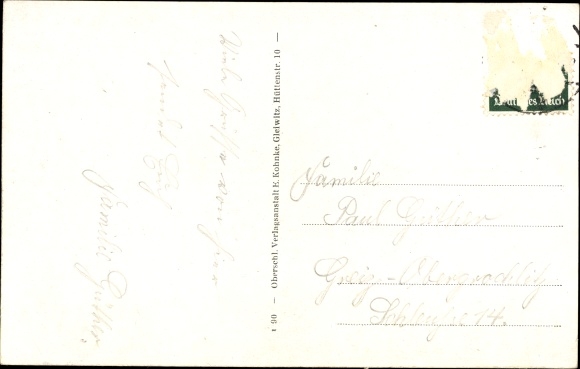 Viele Grüße von hier
sendet Euch
Familie Günther.
1 90 — Oberschl. Verlagsanstalt E. Kohnke, Gleiwitz, Hüttenstr. 10 —
Deutsches Reich
Familie
Paul Günther
Greiz-Obergrochlitz
14.